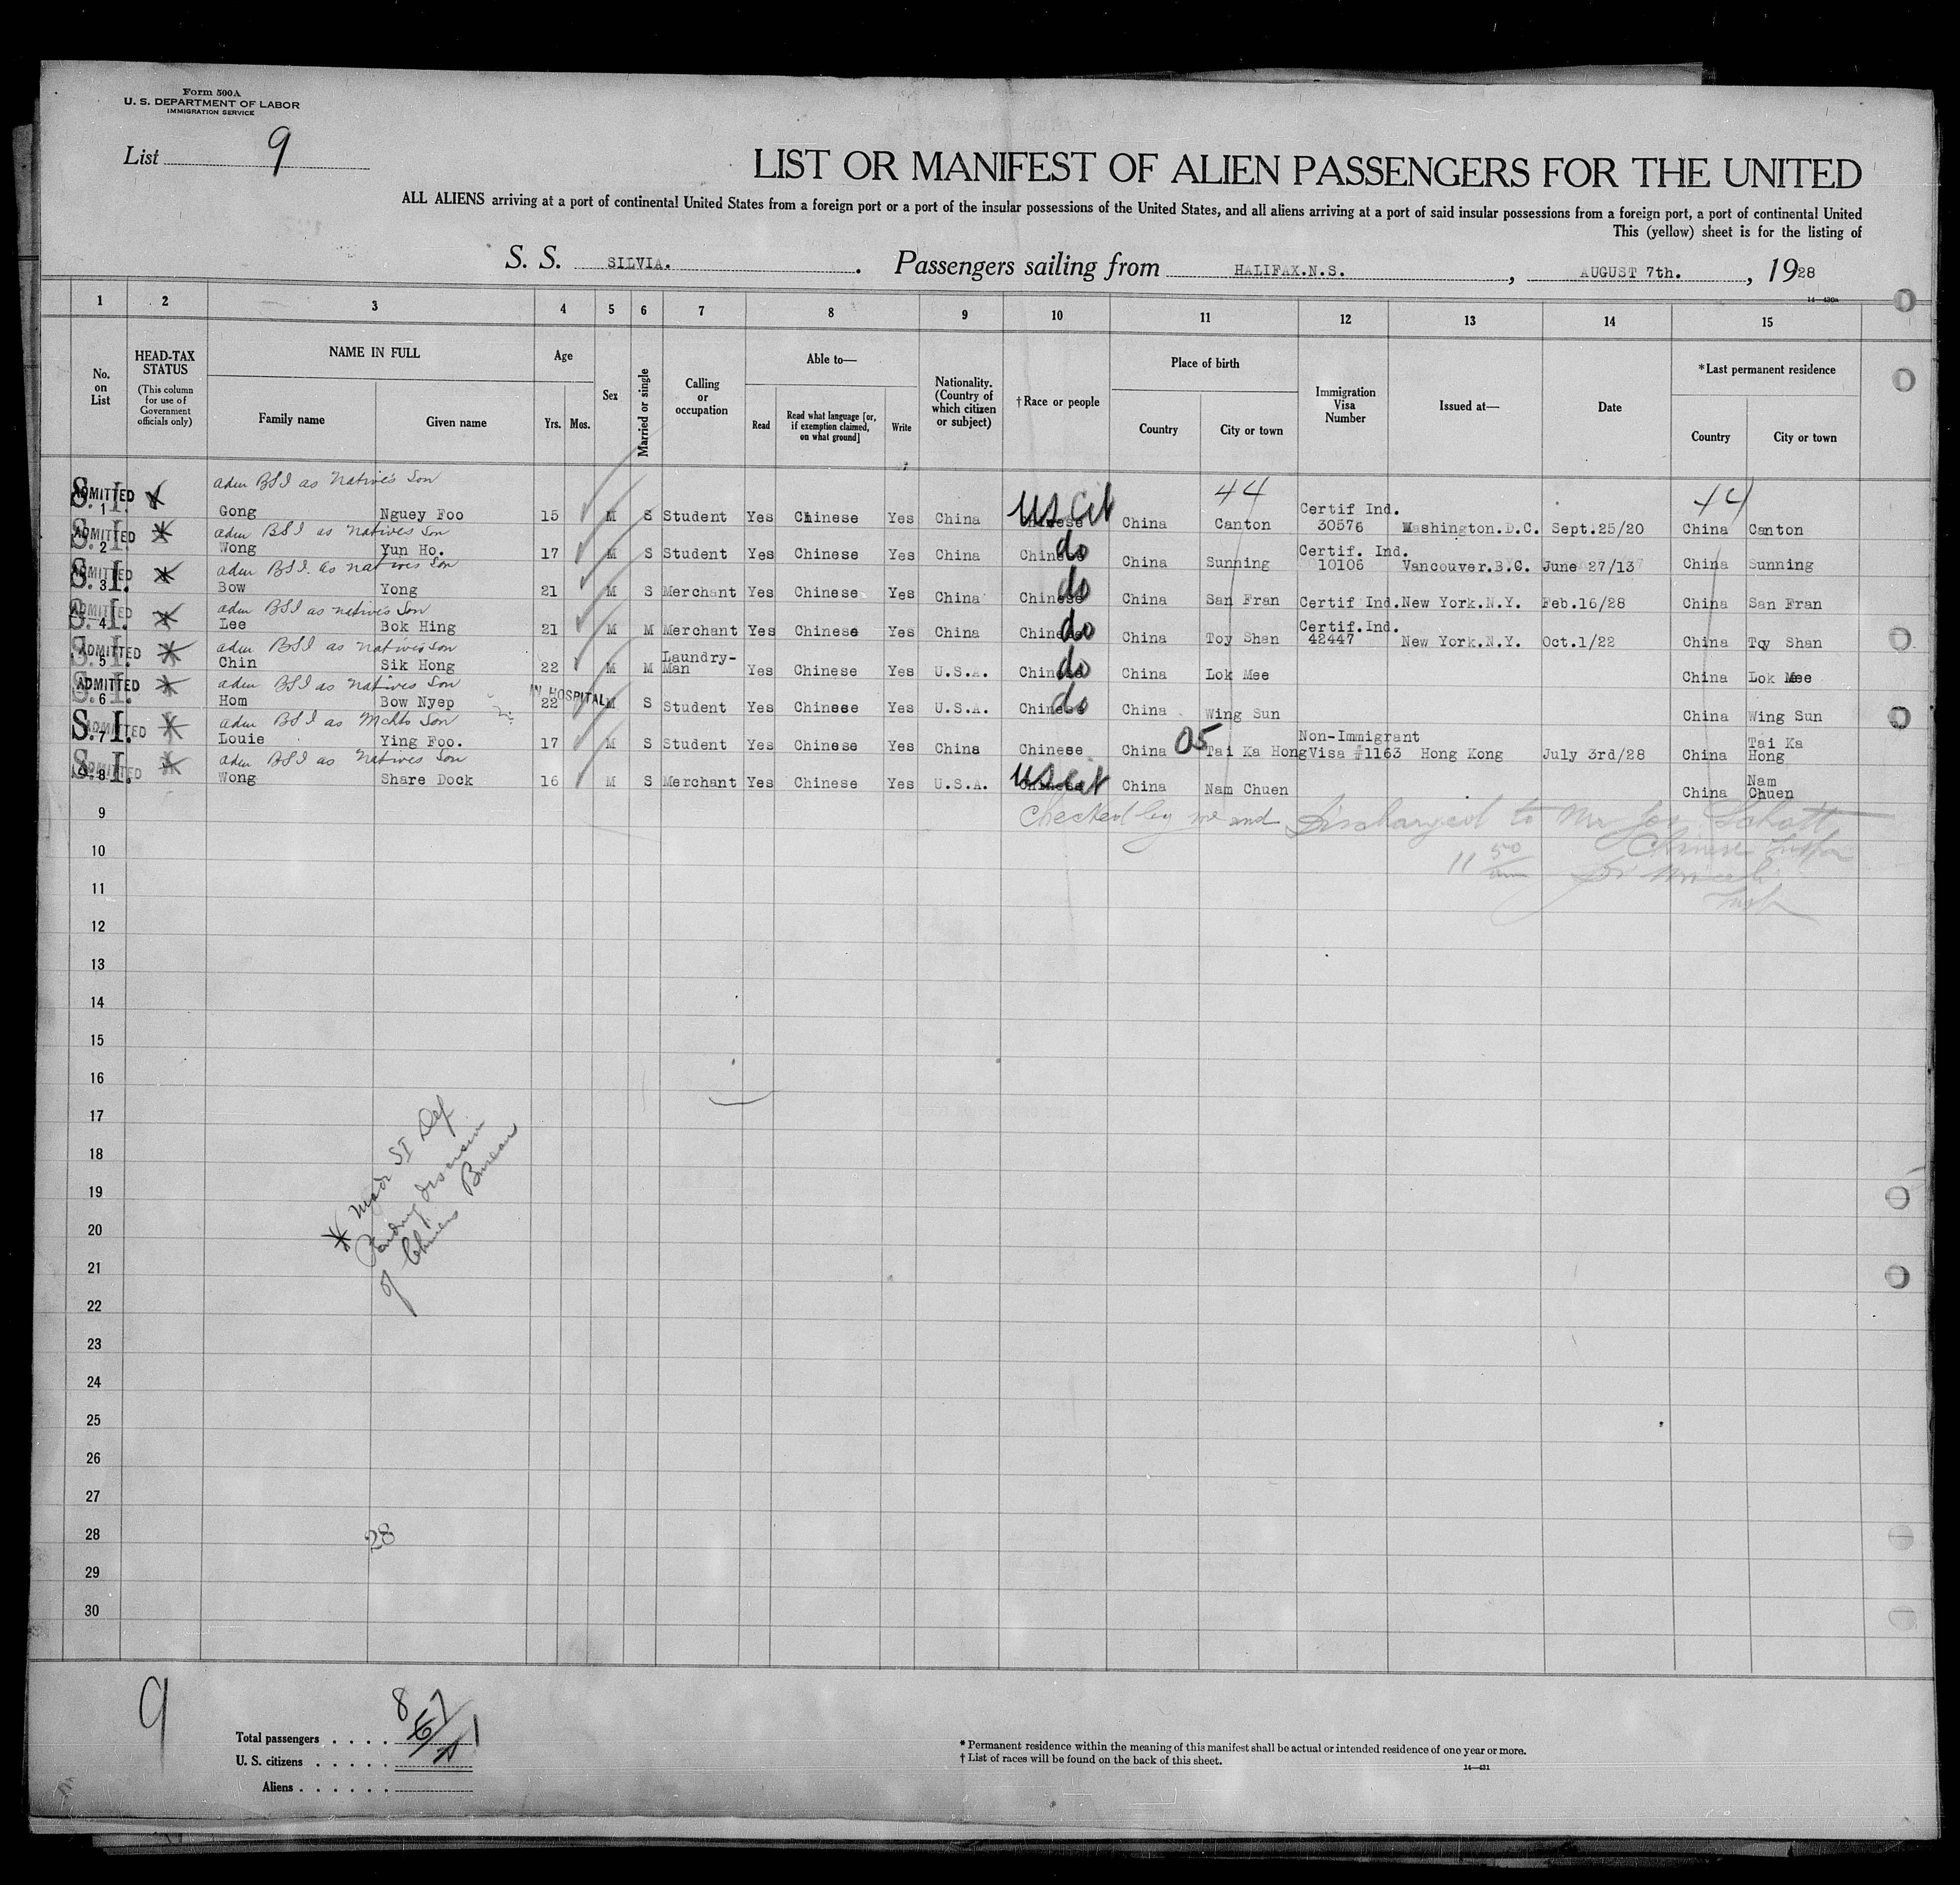 Form 500A
U. S. DEPARTMENT OF LABOR
IMMIGRATION SERVICE
List 9
LIST OR MANIFEST OF ALIEN PASSENGERS FOR THE UNITED
ALL ALIENS arriving at a port of continental United States from a foreign port or a port of the insular possessions of the United States, and all aliens arriving at a port of said insular possessions from a foreign port, a port of continental United
This (yellow) sheet is for the listing of
S. S. SILVIA. Passengers sailing from HALIFAX.N.S. , AUGUST 7th. , 1928
14—430a
1 2 3 4 5 6 7 8 9 10 11 12 13 14 15
No. on List HEAD-TAX STATUS (This column for use of Government officials only) NAME IN FULL Family name Given name Age Yrs. Mos. Sex Married or single Calling or occupation Able to— Read Read what language [or, if exemption claimed, on what ground] Write Nationality. (Country of which citizen or subject) †Race or people Place of birth Country City or town Immigration Visa Number Issued at— Date *Last permanent residence Country City or town
adm BSI as Natives Son 44 44
S.I. ADMITTED 1 Gong Nguey Foo 15 M S Student Yes Chinese Yes China Chinese US Cit China Canton Certif Ind. 30576 Washington.D.C. Sept.25/20 China Canton
adm BSI as Natives Son
S.I. ADMITTED 2 Wong Yun Ho. 17 M S Student Yes Chinese Yes China Chinese do China Sunning Certif. Ind. 10106 Vancouver.B.C. June 27/13 China Sunning
adm BSI. as natives Son
S.I. ADMITTED 3 Bow Yong 21 M S Merchant Yes Chinese Yes China Chinese do China San Fran Certif Ind. New York.N.Y. Feb.16/28 China San Fran
adm BSI as natives Son
S.I. ADMITTED 4 Lee Bok Hing 21 M M Merchant Yes Chinese Yes China Chinese do China Toy Shan Certif.Ind. 42447 New York.N.Y. Oct.1/22 China Toy Shan
adm BSI as natives Son
S.I. ADMITTED 5 Chin Sik Hong 22 M M Laundry-Man Yes Chinese Yes U.S.A. Chinese do China Lok Mee China Lok Mee
adm BSI as natives Son
S.I. ADMITTED 6 Hom Bow Nyep IN HOSPITAL 22 M S Student Yes Chinese Yes U.S.A. Chinese do China Wing Sun China Wing Sun
adm BSI as Mchts Son
S.I. ADMITTED 7 Louie Ying Foo. 17 M S Student Yes Chinese Yes China Chinese China 05 Tai Ka Hong Non-Immigrant Visa #1163 Hong Kong July 3rd/28 China Tai Ka Hong
adm BSI as Natives Son
S.I. ADMITTED 8 Wong Share Dock 16 M S Merchant Yes Chinese Yes U.S.A. Chinese US Cit China Nam Chuen China Nam Chuen
9 Checked by me and Discharged to Mr Jos
10 Chinese
11 50 am
11
12
13
14
15
16
17
18
19
20
21
22
23
24
25
26
27
28
29
30
* Made SI Def
Pending decision
of Chinese Bureau
28
9
Total passengers . . . . 8
U. S. citizens . . . . .
Aliens . . . . . .
* Permanent residence within the meaning of this manifest shall be actual or intended residence of one year or more.
† List of races will be found on the back of this sheet.
14—431